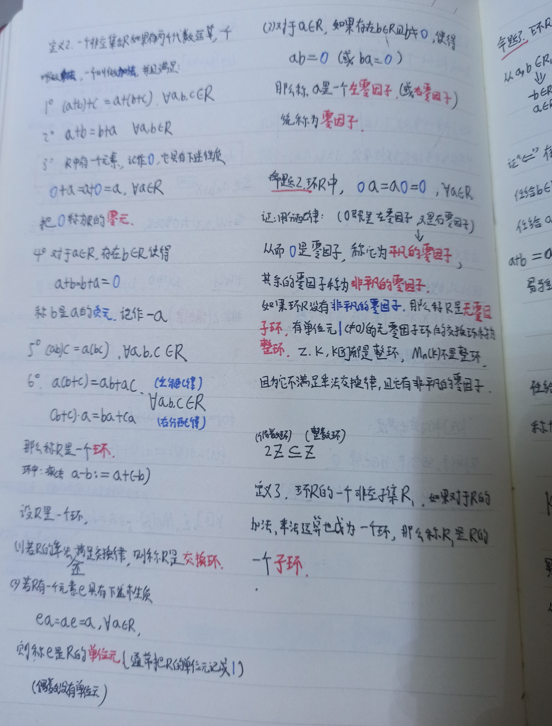 定义2. 一个非空集合R如果有两个代数运算, 一个
叫做加法, 一个叫做乘法, 并且满足:
1° (a+b)+c = a+(b+c), ∀a,b,c∈R
2° a+b = b+a ∀a,b∈R
3° R中有一个元素, 记作0, 它具有下述性质
0+a=a+0=a, ∀a∈R
把0称为R的零元.
4° 对于a∈R, 存在b∈R, 使得
a+b=b+a=0
称b是a的负元, 记作-a
5° (ab)c = a(bc), ∀a,b,c∈R
6° a(b+c)=ab+ac (左分配律)
∀a,b,c∈R
(b+c)·a=ba+ca (右分配律)
那么称R是一个环.
环中: 减法 a-b:= a+(-b)
设R是一个环,
(1)若R的乘法还满足交换律, 则称R是交换环.
(2)若R有一个元素e具有下述性质
ea=ae=a, ∀a∈R,
则称e是R的单位元(通常把R的单位元记成1)
(偶数环没有单位元)
(3)对于a∈R, 如果存在b∈R且b≠0, 使得
ab=0 (或ba=0)
那么称a是一个左零因子. (或右零因子)
统称为零因子.
命题2. 环R中, 0a=a0=0, ∀a∈R
证: 用分配律: (0既是左零因子 又是右零因子)
从而0是零因子, 称它为平凡的零因子;
其余的零因子称为非平凡的零因子.
如果环R没有非平凡的零因子. 那么称R是无零因
子环. 有单位元1(≠0)的无零因子环的交换环称为
整环. Z, K, K[x]都是整环, Mn(K)不是整环.
因为它不满足乘法交换律, 且它有非平凡的零因子.
(偶数环) (整数环)
2Z ⊆ Z
定义3. 环R的一个非空子集R₁, 如果对于R的
加法, 乘法运算也成为一个环, 那么称R₁是R的
一个子环.
命题3. 环R
从a,b∈R₁
b∈R
a∈R
证"⇐"
任给b∈
任给a
a+b = a
任给